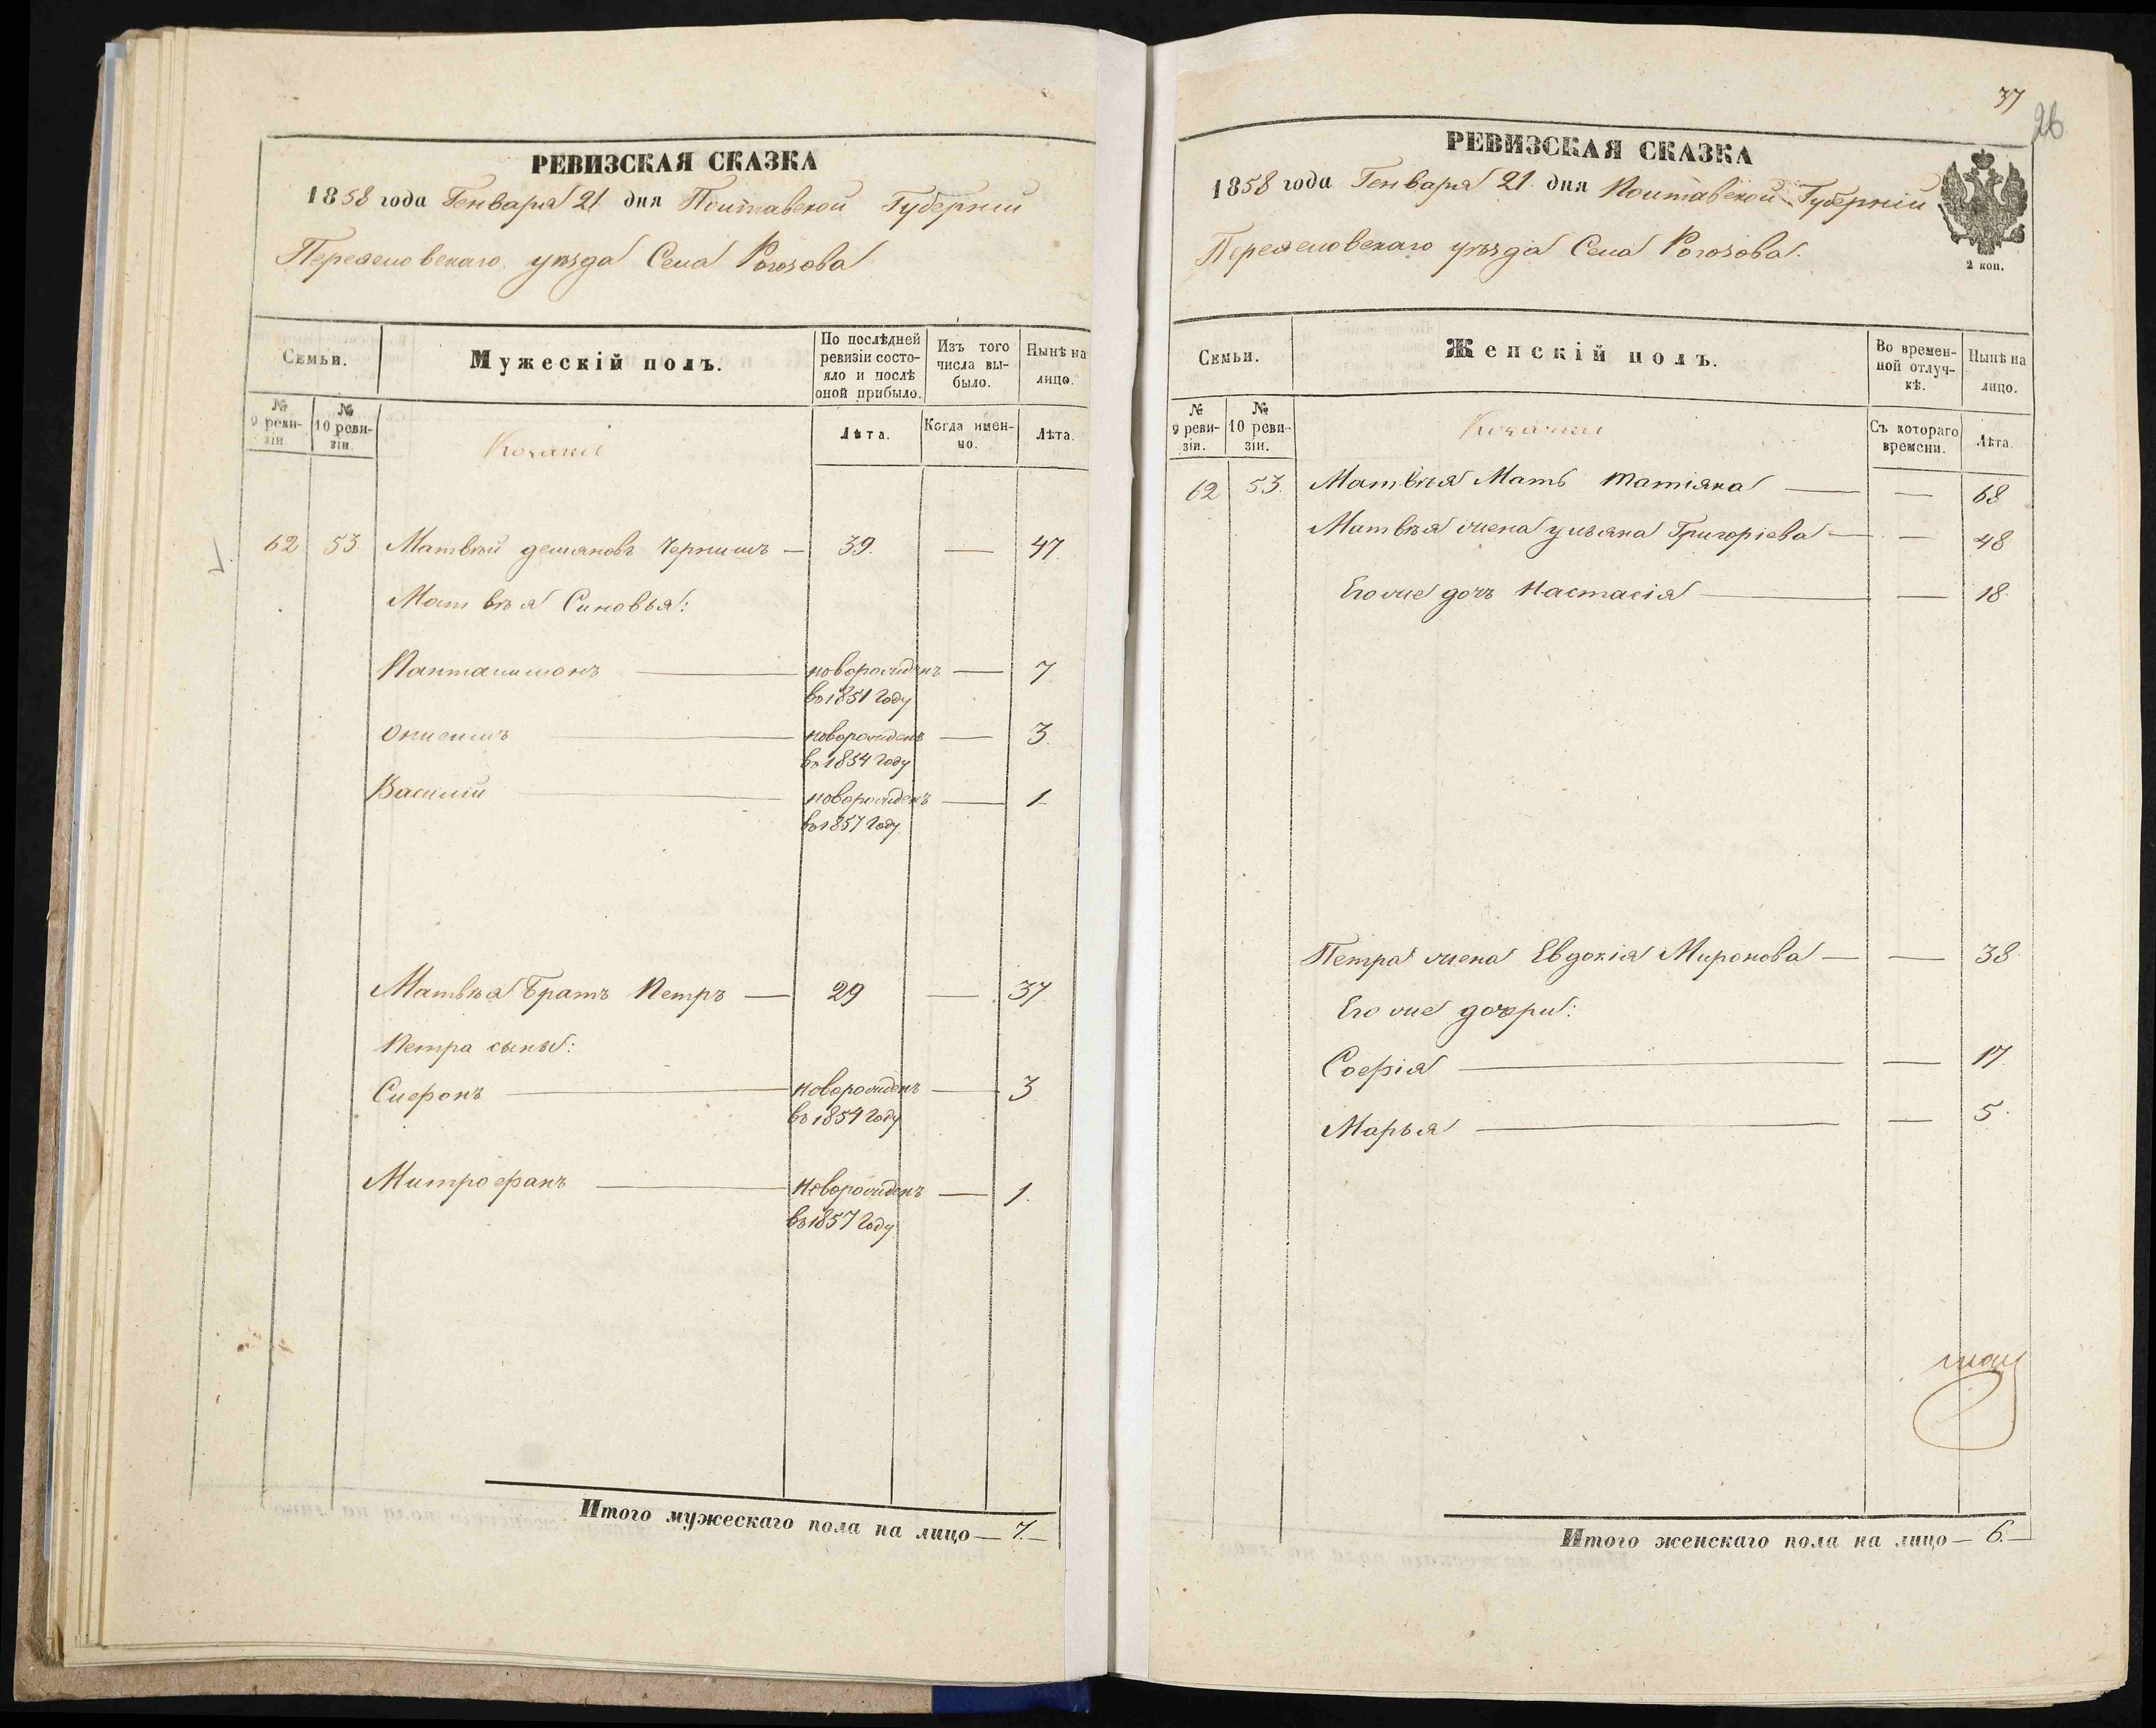 РЕВИЗСКАЯ СКАЗКА
1858 года Генваря 21 дня Полтавской Губерніи
Переяславскаго уѣзда Села Рогозова
Семьи.
Мужескій полъ.
По послѣдней ревизіи состояло и послѣ оной прибыло.
Изъ того числа выбыло.
Нынѣ на лицо.
№ 9 ревизіи
№ 10 ревизіи
Козаки
Лѣта.
Когда именно.
Лѣта.
62 53 Матвѣй демяновъ Чернишъ — 39. — 47
Матвѣя Синовья:
Панталимонъ — новорожденъ — 7
въ 1851 году
Онисимъ — новорожденъ — 3
въ 1854 году
Василій — новорожденъ — 1
въ 1857 году
Матвѣя Братъ Петръ — 29 — 37
Петра сыны:
Сиѳронъ — новорожденъ — 3
въ 1854 году
Митрофанъ — новорожденъ — 1.
въ 1857 году
Итого мужескаго пола на лицо — 7. —
37
26
РЕВИЗСКАЯ СКАЗКА
1858 года Генваря 21. дня Полтавской Губерніи
Переяславскаго уѣзда Села Рогозова.
2 коп.
Семьи.
Женскій полъ.
Во временной отлучкѣ.
Нынѣ на лицо.
№ 9 ревизіи.
№ 10 ревизіи.
Козачки
Съ котораго времени.
Лѣта.
62 53. Матвѣя Мать Матіяна — — 68
Матвѣя жена ульяна Григоріева — — 48
Его же дочъ Настасія — — 18
Петра жена Евдокія Миронова — — 38
Его же дочери:
Софія — — 17
Марья — — 5.
Итого женскаго пола на лицо — 6. —